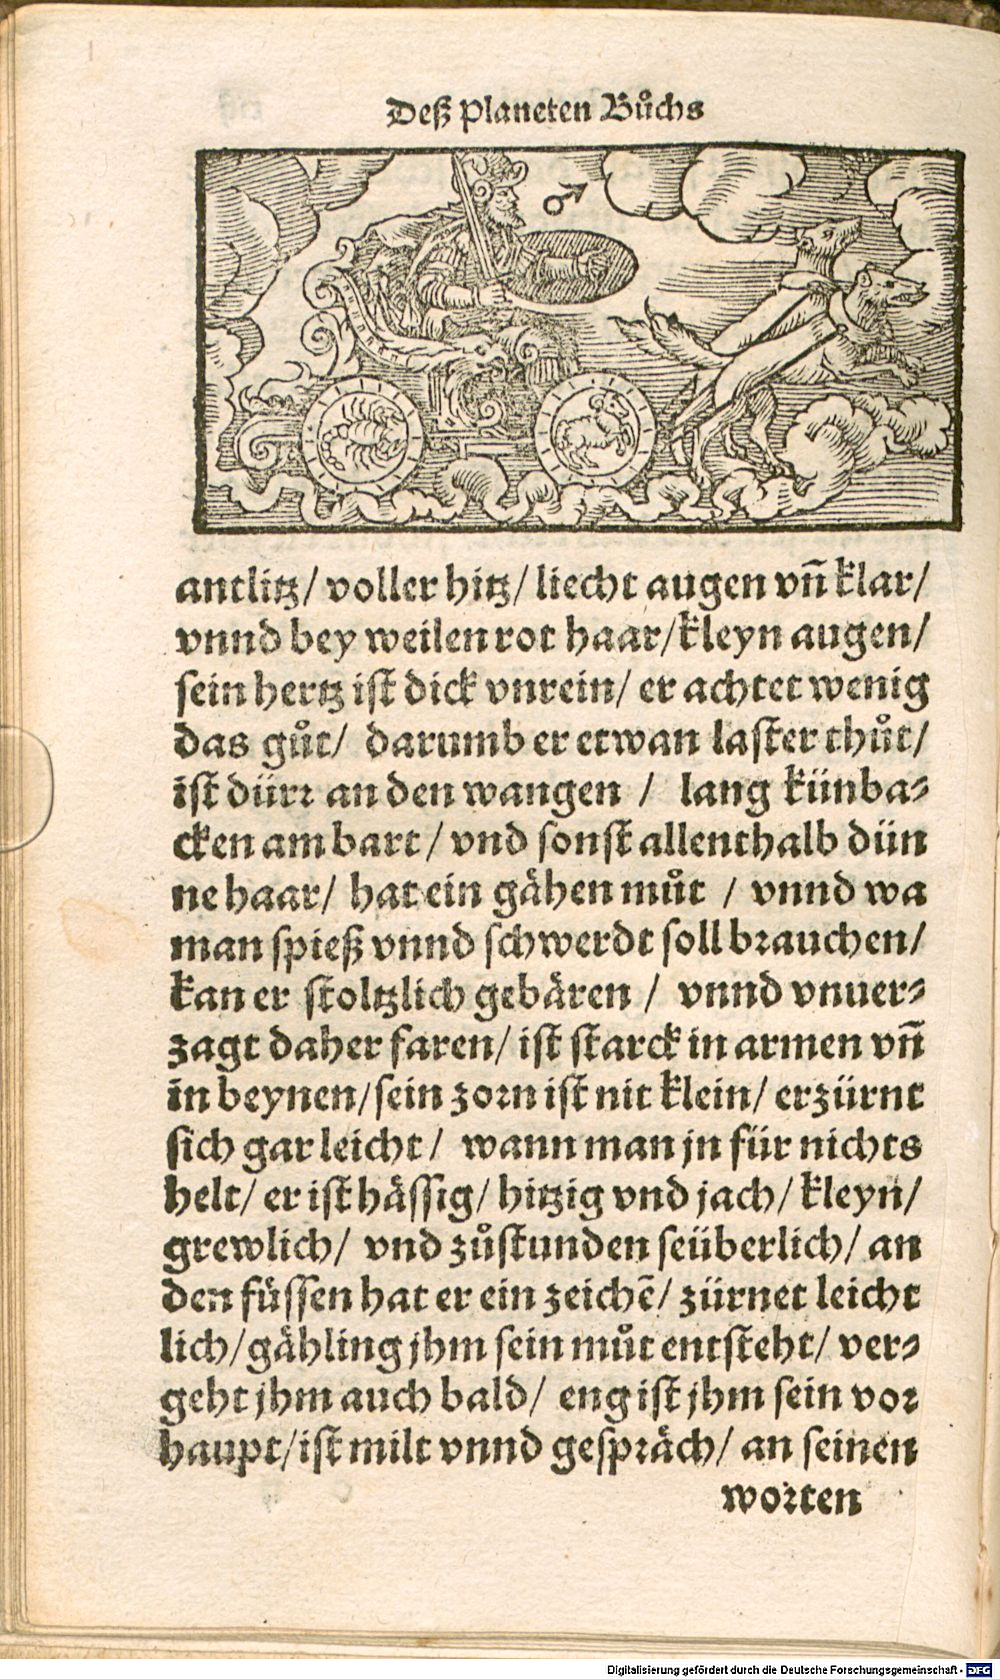 Deß Planeten Bůchs
♂
antlitz/ voller hitz/ liecht augen vñ klar/
vnnd bey weilen rot haar/kleyn augen/
sein hertz ist dick vnrein/ er achtet wenig
das gůt/ darumb er etwan laster thůt/
ist dürr an den wangen / lang künba-
cken am bart / vnd sonst allenthalb dün
ne haar/ hat ein gåhen můt / vnnd wa
man spieß vnnd schwerdt soll brauchen/
kan er stoltzlich gebåren / vnnd vnuer-
zagt daher faren/ ist starck in armen vñ
in beynen/sein zorn ist nit klein/ erzürnt
sich gar leicht/ wann man jn für nichts
helt/ er ist håssig/ hitzig vnd jach/ kleyn/
grewlich/ vnd zůstunden seüberlich/ an
den füssen hat er ein zeichẽ/ zürnet leicht
lich/gåhling jhm sein můt entsteht/ ver-
geht jhm auch bald/ eng ist jhm sein vor
haupt/ist milt vnnd gespråch/ an seinen
worten
Digitalisierung gefördert durch die Deutsche Forschungsgemeinschaft - DFG